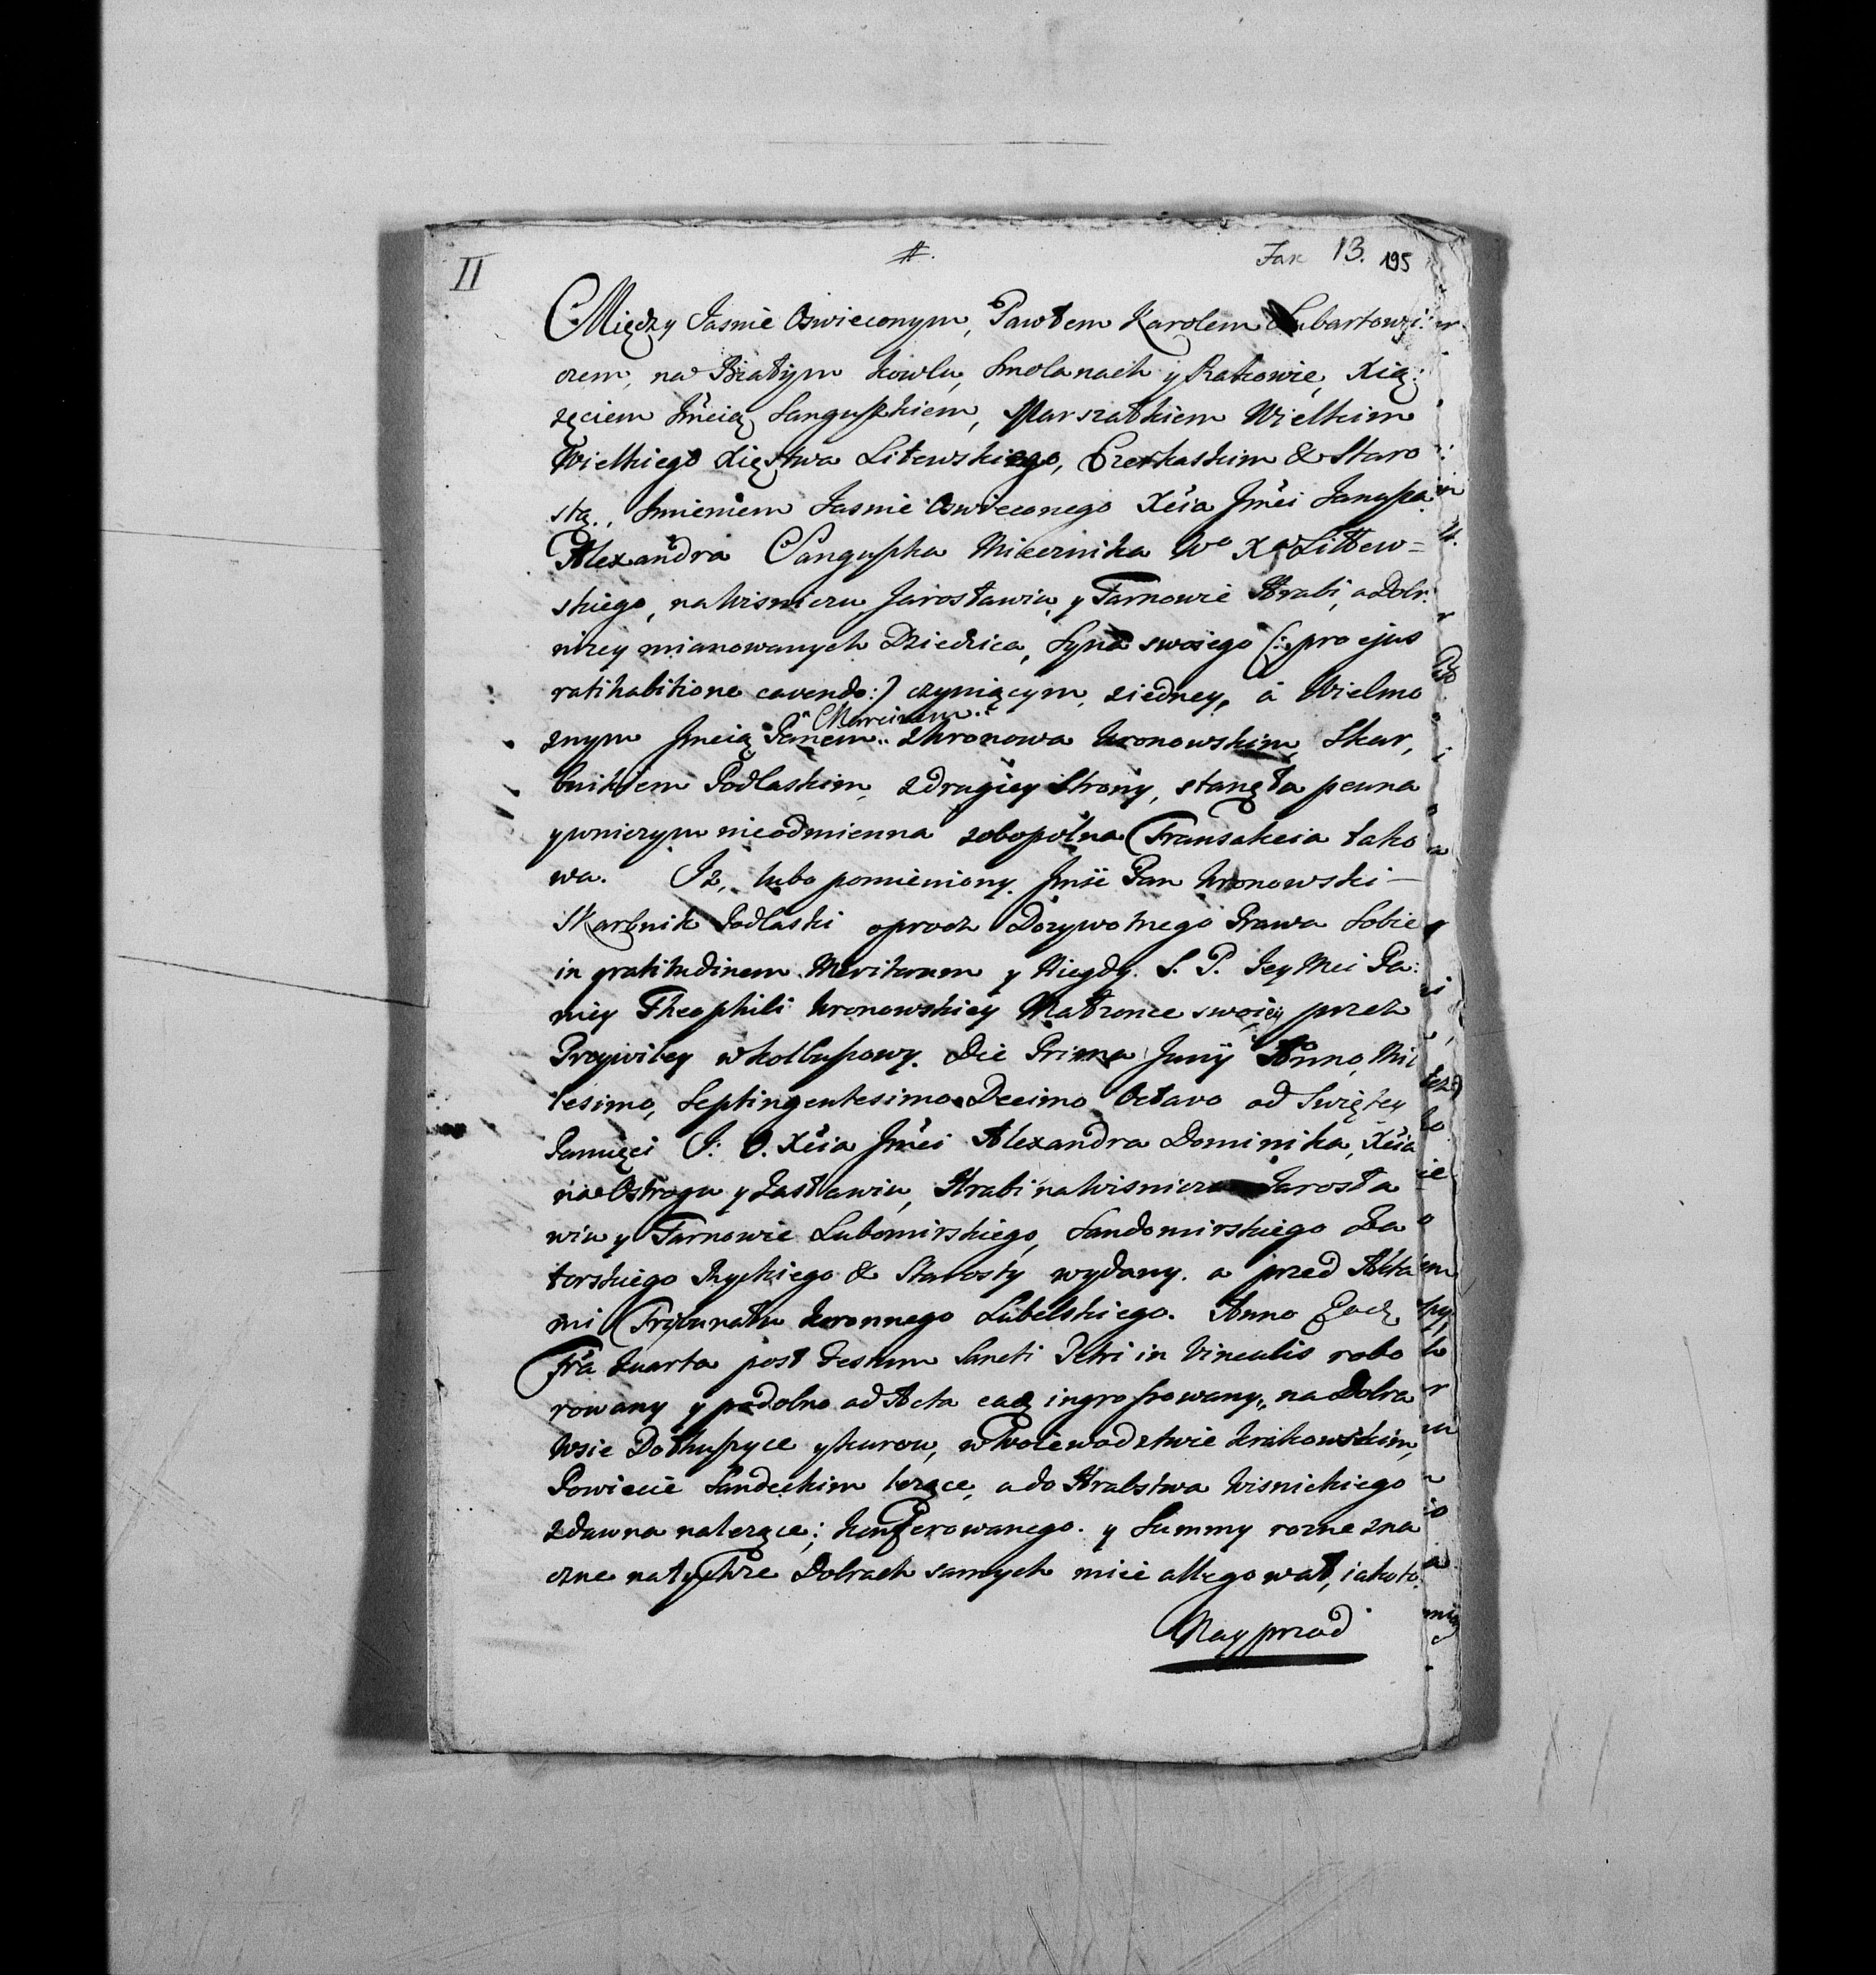 II # Fax 13. 195
Między Jasnie Oswieconym, Pawłem Karolem Lubartowi:
czem, na Białym Kowlu, Smolanach y Rakowie, Xią:
zęciem Jmcią Sanguszkiem, Marszałkiem Wielkim
Wielkiego Xięstwa Litewskiego, Czerkaskim & Staro
stą., Imieniem Jasnie Oswieconego Xcia Jmci Janusza
Alexandra Sanguszka Miecznika Wo Xa Littew=
skiego, na Wisniczu Jarosławiu, y Tarnowie Hrabi, a Dobr
nizey mianowanych Dziedzica, Syna swoiego (: pro ejus
ratihabitione cavendo:) czyniącym, ziedney, á Wielmo
znym Jmcią Panem Marcinem zWronowa Wronowskim, Skar,
bnikiem Podlaskim, zdrugiey Strony, stanęła pewna
ywniczym nieodmienna zobopolna Transakcia tako
wa. Iz, lubo pomieniony Jmsć Pan Wronowski —
Skarbnik Podlaski oprocz Dozywotnego Prawa Sobie
in gratitudinem Meritorum y Niegdy. S. P. JeyMci Pa:
niey Theophili Wronowskiey Małzonce swoiey przez
Przywiley wKolbuszowy. Die Prima Junij Anno, Mil
lesimo, Septingentesimo Decimo Octavo od Swiętey
Pamięci J: O. Xcia Jmci Alexandra Dominika, Xcia
na Ostrogu y Zasławiu, Hrabi na Wisniczu Jarosła
wiu y Tarnowie Lubomirskiego, Sandomirskiego Za
torskiego Ryckiego & Starosty wydany. a przed Akta
mi Trybunału Koronnego Lubelskiego. Anno Eodẽ
Fr̃a Quarta post Festum Sancti Petri in Vinculis robo
rowany y podobno ad Acta eadẽ ingrossowany, na Dobra
Wsie Dołuszyce yKurow, wWoiewodztwie Krakowskim,
Powiecie Sandeckim lezące, a do Hrabstwa Wisnickiego
zdawna nalezące; konferowanego. y Summy rozne zna
czne natychze Dobrach samych mieć allegował, iakoto.
Nayprzod